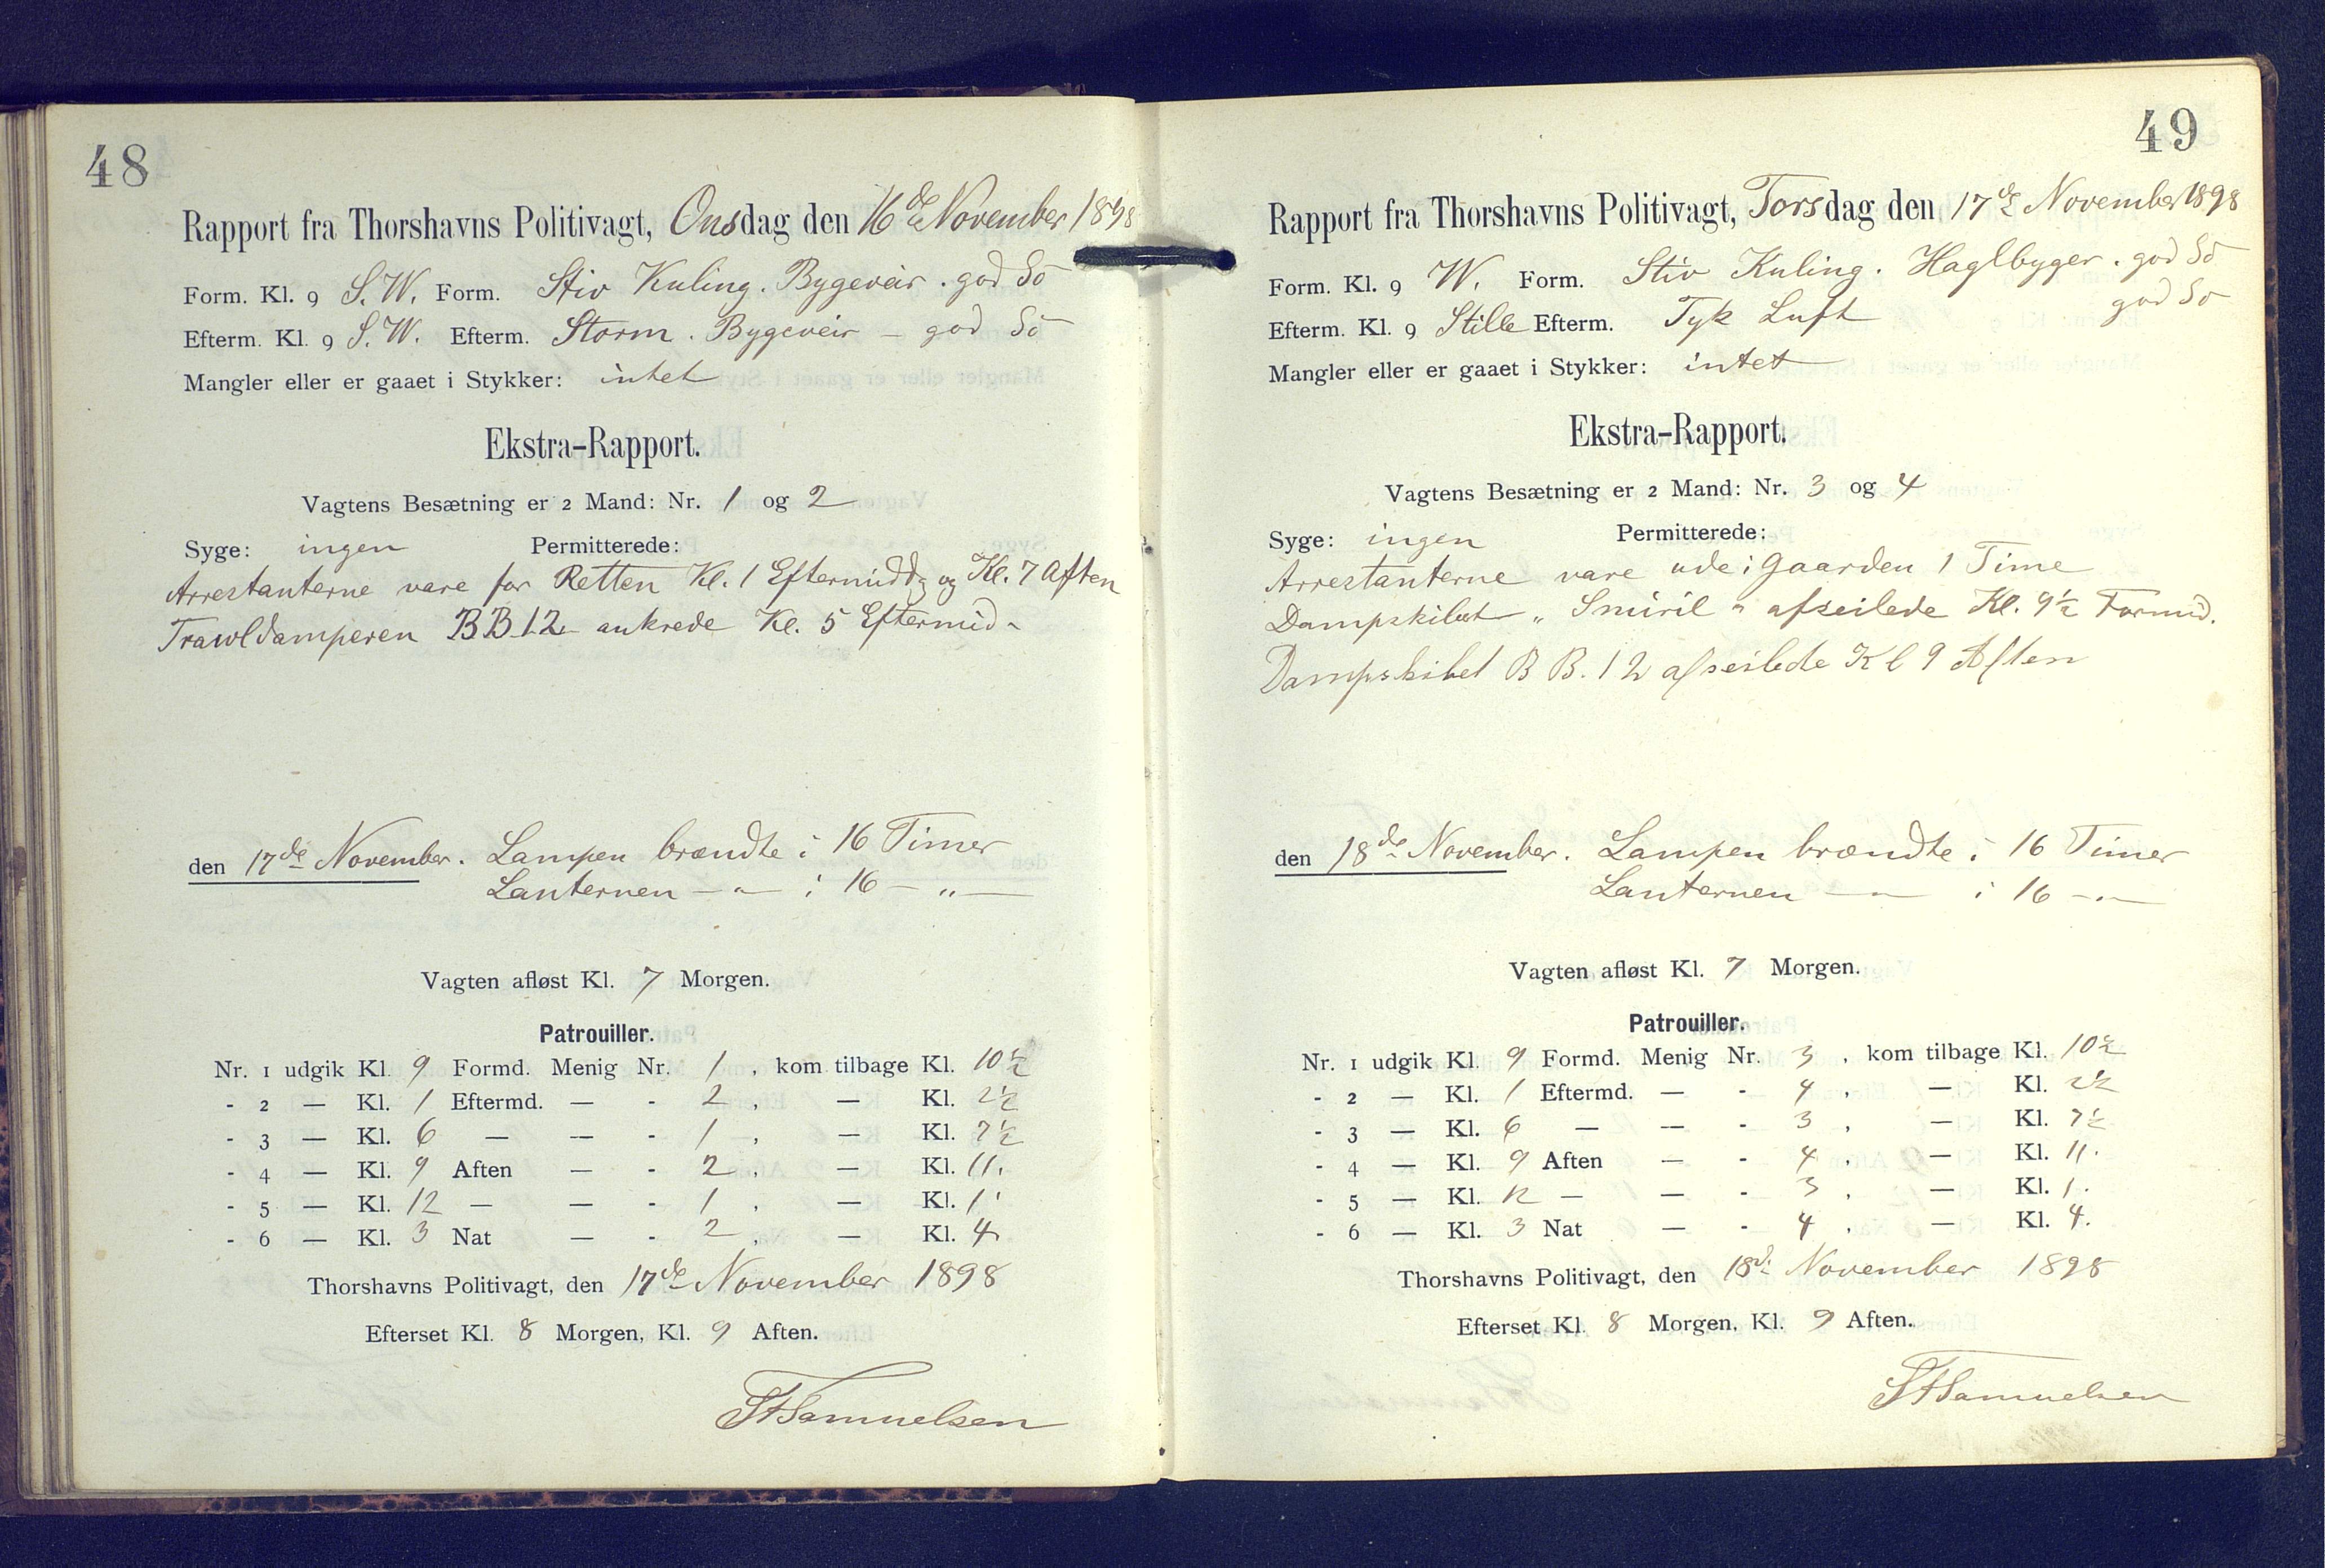 48
Rapport fra Thorshavns Politivagt, Onsdag den 16de November 1898
Form. Kl. 9 S. W. Form. Stiv Kuling. Bygeveir. god Sö
Efterm. Kl. 9 S. W. Efterm. Storm. Bygeveir — god Sö
Mangler eller er gaaet i Stykker: intet
Ekstra-Rapport.
Vagtens Besætning er 2 Mand: Nr. 1 og 2
Syge: ingen Permitterede:
Arrestanterne vare for Retten Kl. 1 Eftermiddg og Kl. 7 Aften
Trawldamperen BB.12 ankrede Kl. 5 Eftermid.
den 17de November. Lampen brændte i 16 Timer
Lanternen — " — i 16 — " —
Vagten afløst Kl. 7 Morgen.
Patrouiller.
Nr. 1 udgik Kl. 9 Formd. Menig Nr. 1, kom tilbage Kl. 10½
- 2 — Kl. 1 Eftermd. — - 2, — Kl. 2½
- 3 — Kl. 6 — — - 1, — Kl. 7½
- 4 — Kl. 9 Aften — - 2, — Kl. 11.
- 5 — Kl. 12 — — - 1, — Kl. 1.
- 6 — Kl. 3 Nat — - 2, — Kl. 4
Thorshavns Politivagt, den 17de November 1898
Efterset Kl. 8 Morgen, Kl. 9 Aften.
Samuelsen
49
Rapport fra Thorshavns Politivagt, Torsdag den 17de November 1898
Form. Kl. 9 W. Form. Stiv Kuling. Haglbyger. god Sö
Efterm. Kl. 9 Stille Efterm. Tyk Luft god Sö
Mangler eller er gaaet i Stykker: intet
Ekstra-Rapport.
Vagtens Besætning er 2 Mand: Nr. 3 og 4
Syge: ingen Permitterede:
Arrestanterne vare ude i Gaarden 1 Time
Dampskibet „Smiril" afseilede Kl. 9½ Formid.
Dampskibet B B. 12 afseilede Kl 9 Aften
den 18de November. Lampen brændte i 16 Timer
Lanternen — " — i 16 — " —
Vagten afløst Kl. 7 Morgen.
Patrouiller.
Nr. 1 udgik Kl. 9 Formd. Menig Nr. 3, kom tilbage Kl. 10½
- 2 — Kl. 1 Eftermd. — - 4, — Kl. 2½
- 3 — Kl. 6 — — - 3, — Kl. 7½
- 4 — Kl. 9 Aften — - 4, — Kl. 11.
- 5 — Kl. 12 — — - 3, — Kl. 1.
- 6 — Kl. 3 Nat — - 4, — Kl. 4.
Thorshavns Politivagt, den 18de November 1898
Efterset Kl. 8 Morgen, Kl. 9 Aften.
Samuelsen